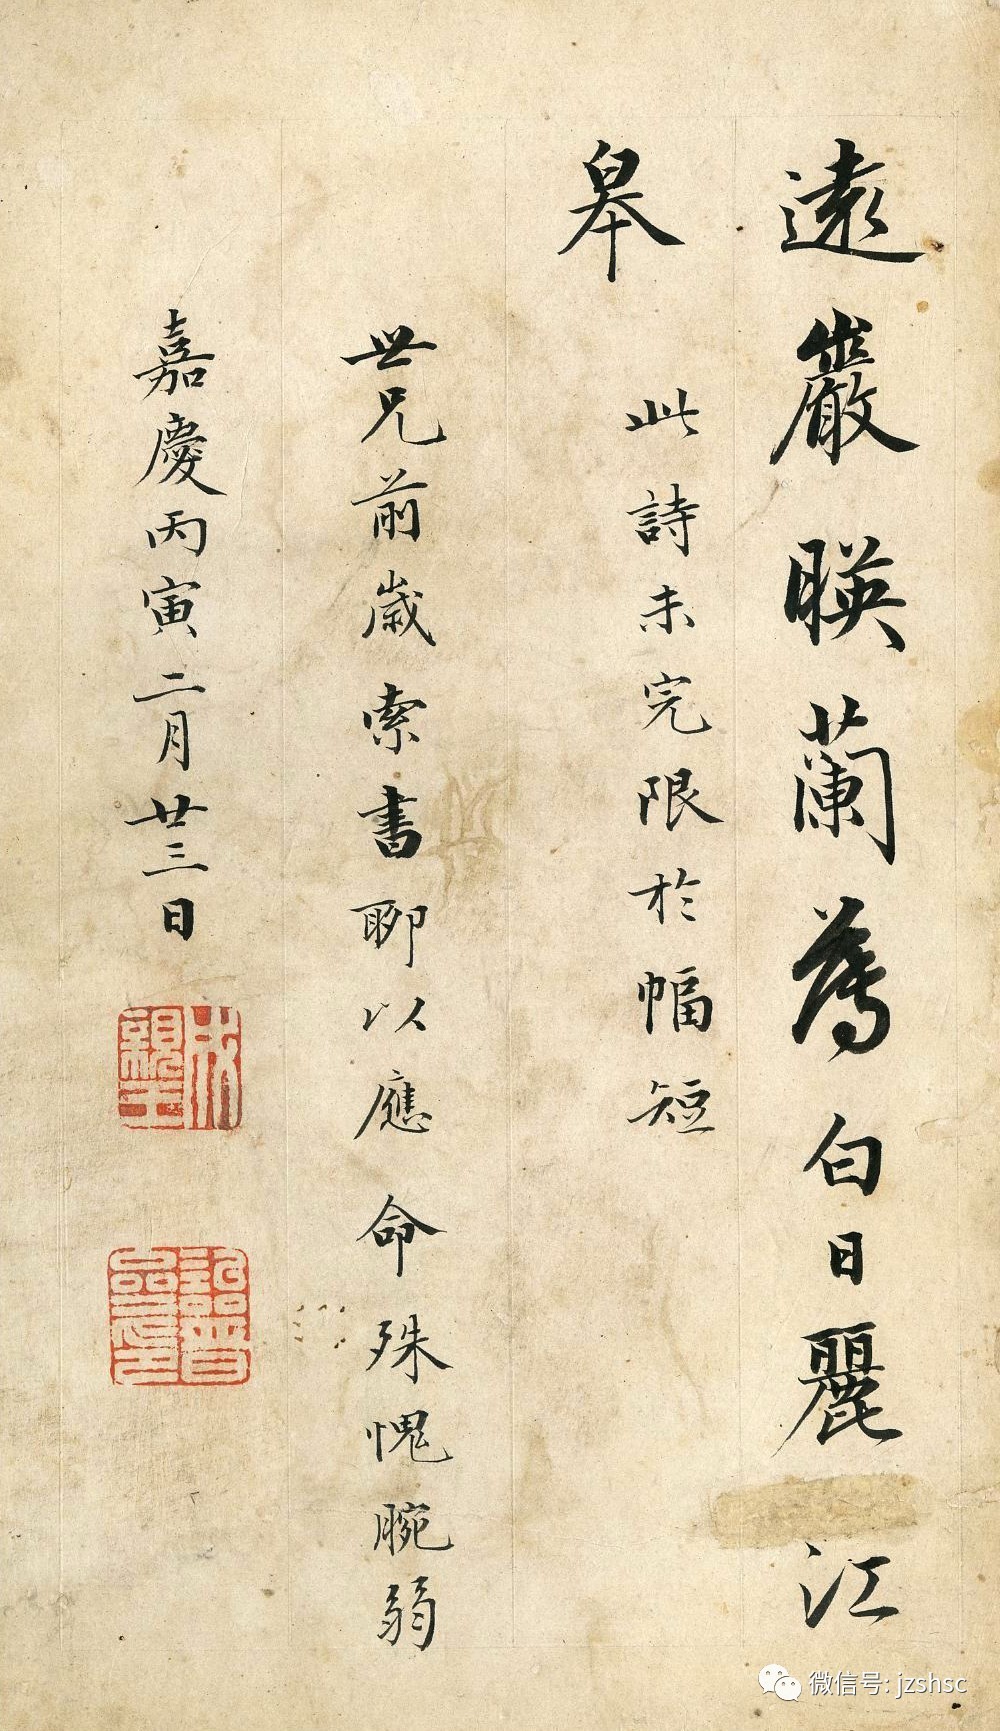 遠巖暎蘭薄白日麗江
皋 此詩未完限於幅短
世兄前歲索書聊以應命殊愧腕弱
嘉慶丙寅二月廿三日
成親王
微信号: jzshsc